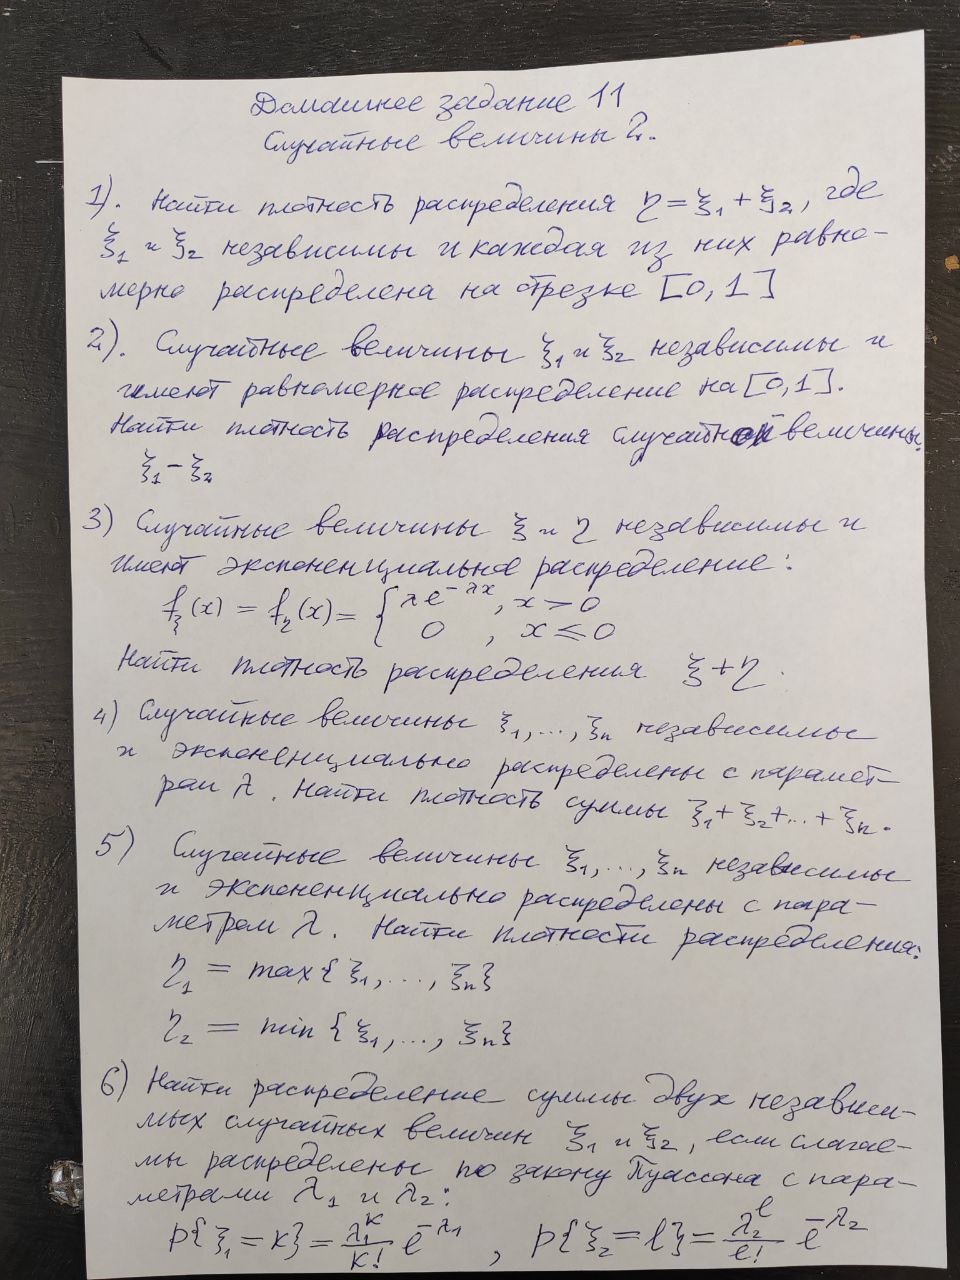 Домашнее задание 11
Случайные величины 2.
1). Найти плотность распределения η = ξ₁ + ξ₂, где
ξ₁ и ξ₂ независимы и каждая из них равно-
мерно распределена на отрезке [0, 1]
2). Случайные величины ξ₁ и ξ₂ независимы и
имеют равномерное распределение на [0, 1].
Найти плотность распределения случайной величины
ξ₁ - ξ₂
3) Случайные величины ξ и η независимы и
имеют экспоненциальное распределение:
f_ξ(x) = f_η(x) = { λe^{-λx}, x > 0
0, x ≤ 0
Найти плотность распределения ξ + η.
4) Случайные величины ξ₁, ..., ξₙ независимы
и экспоненциально распределены с парамет-
ром λ. Найти плотность суммы ξ₁ + ξ₂ + ... + ξₙ.
5) Случайные величины ξ₁, ..., ξₙ независимы
и экспоненциально распределены с пара-
метром λ. Найти плотности распределения:
η₁ = max{ξ₁, ..., ξₙ}
η₂ = min{ξ₁, ..., ξₙ}
6) Найти распределение суммы двух независи-
мых случайных величин ξ₁ и ξ₂, если слагае-
мы распределены по закону Пуассона с пара-
метрами λ₁ и λ₂:
P{ξ₁ = k} = λ₁^k/k! e^{-λ₁}, P{ξ₂ = l} = λ₂^l/l! e^{-λ₂}